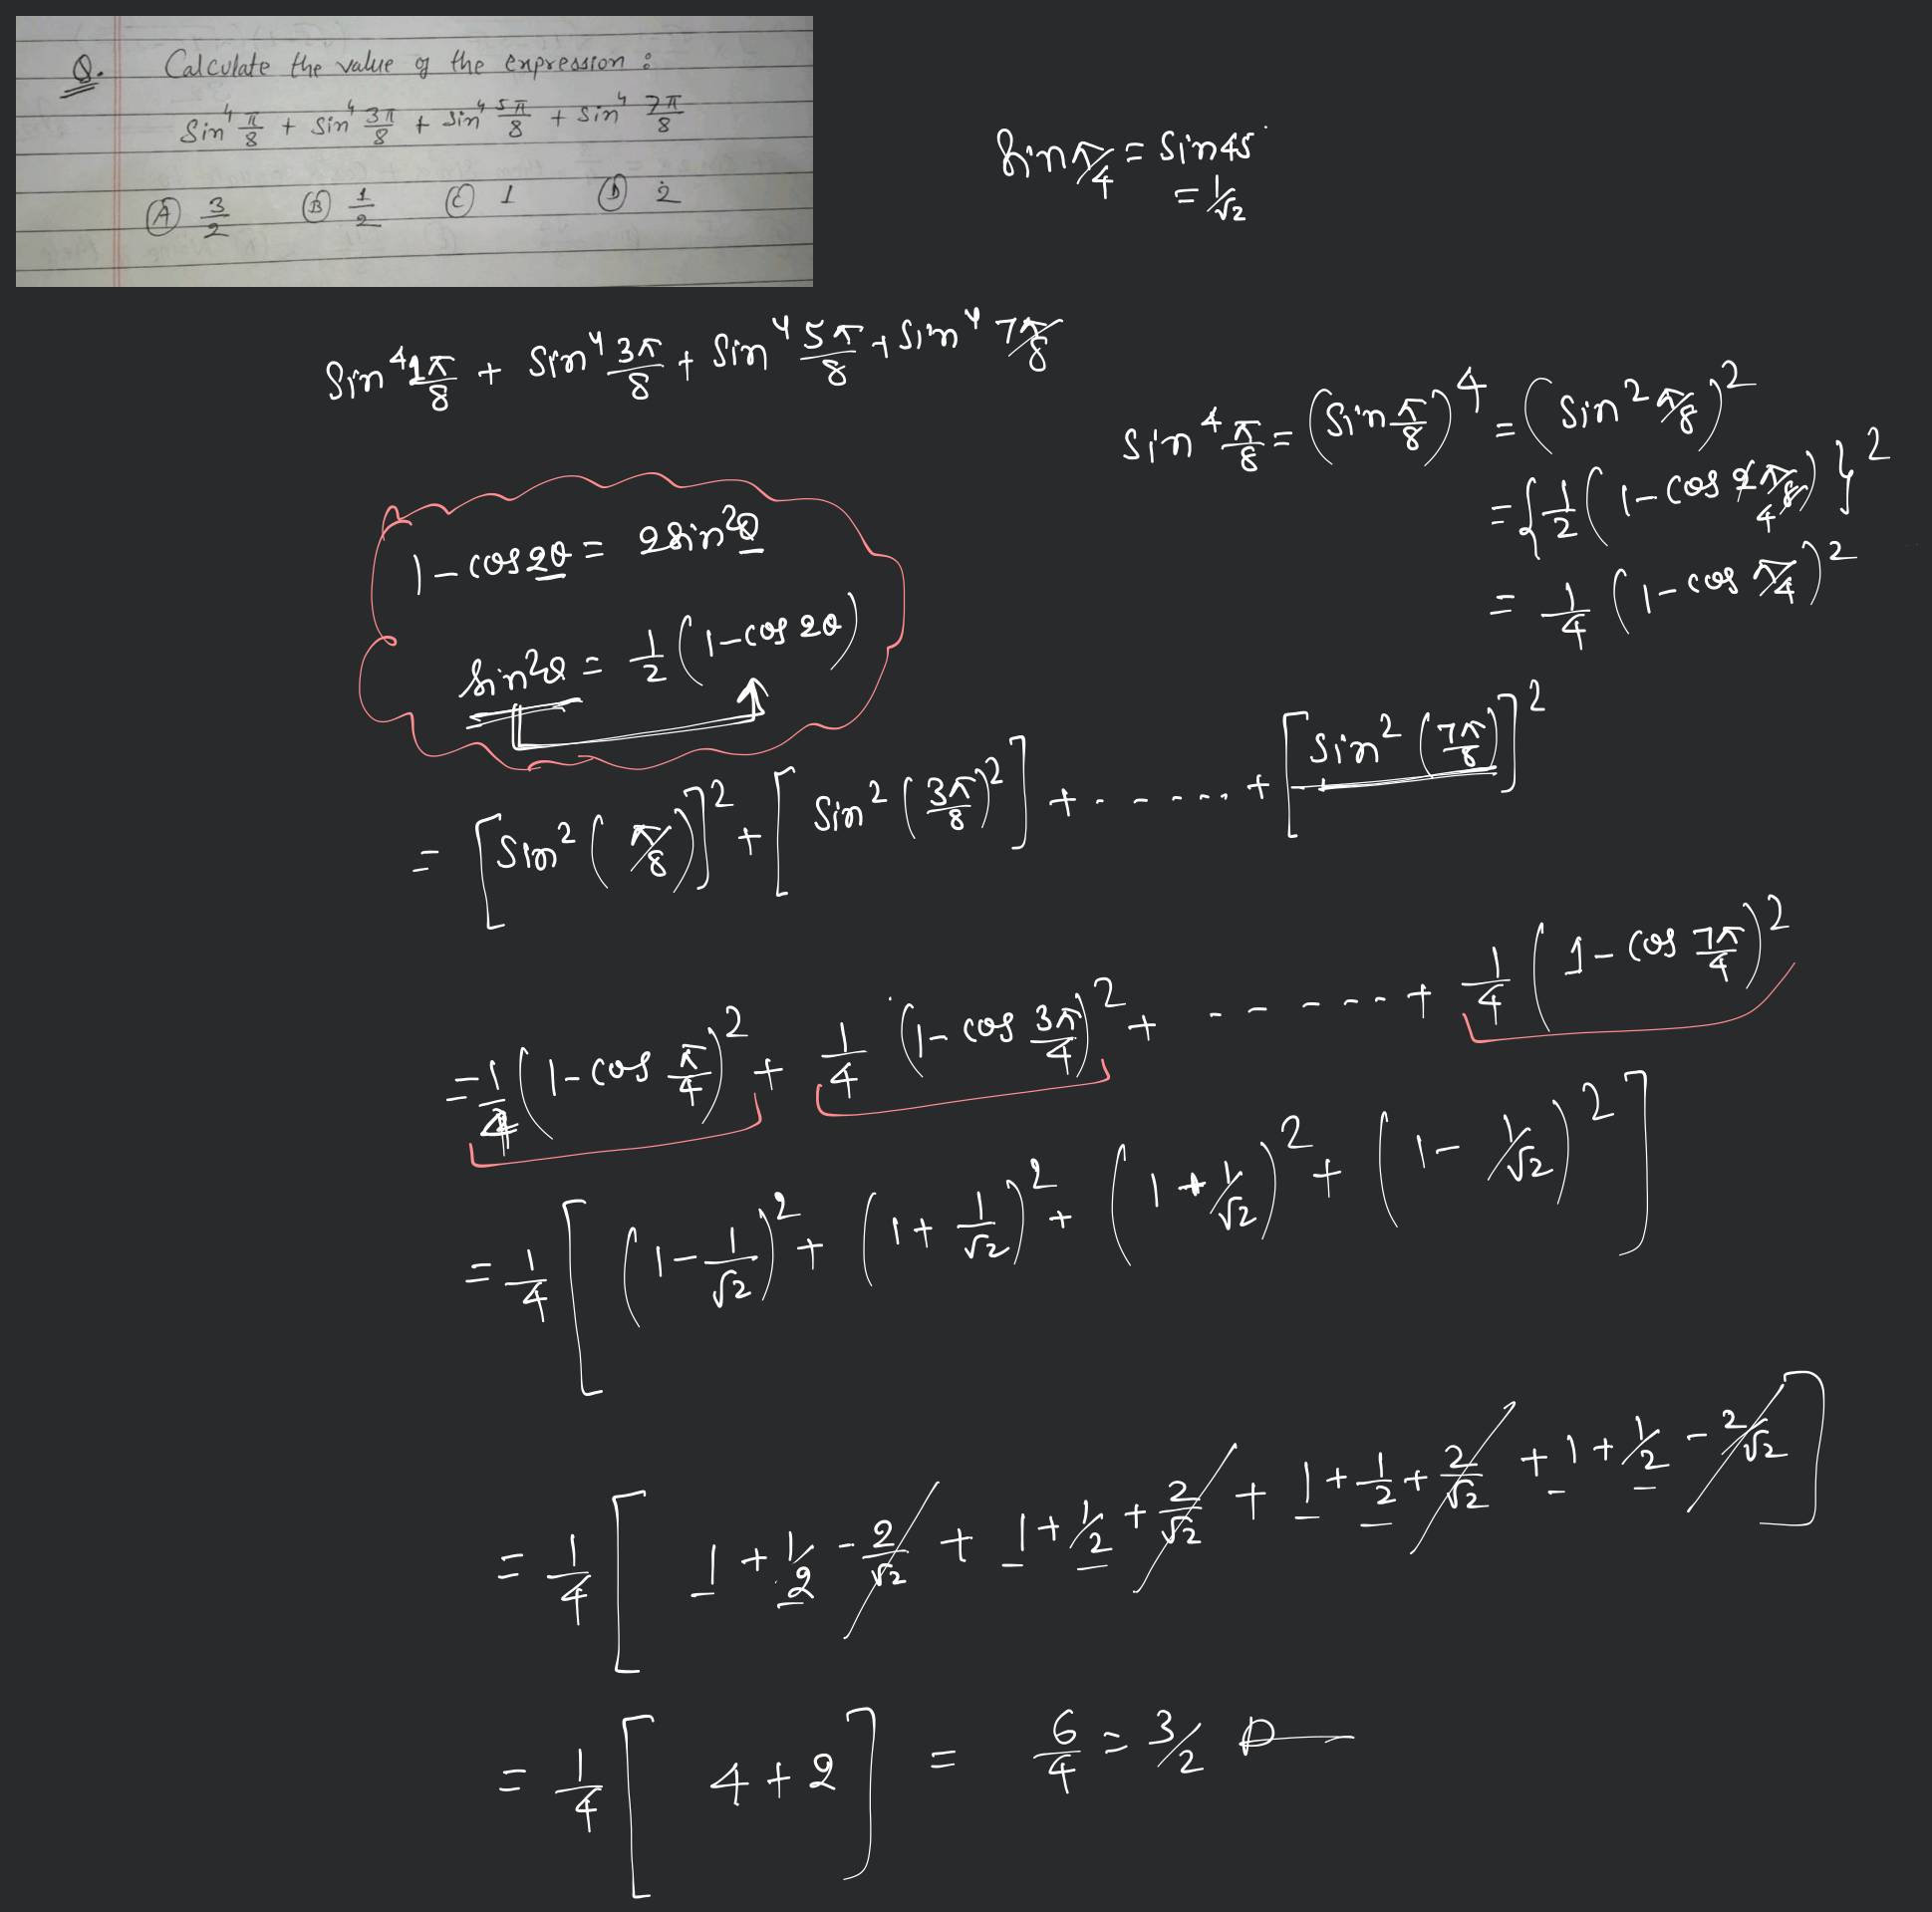 Q. Calculate the value of the expression :
Sin⁴ π/8 + Sin⁴ 3π/8 + Sin⁴ 5π/8 + Sin⁴ 7π/8
(A) 3/2 (B) 1/2 (C) 1 (D) 2
Sin π/4 = Sin 45°
= 1/√2
Sin⁴ 1π/8 + Sin⁴ 3π/8 + Sin⁴ 5π/8 + Sin⁴ 7π/8
Sin⁴ π/8 = (Sin π/8)⁴ = (Sin² π/8)²
= {1/2 (1 - cos 2π/8 4)}²
= 1/4 (1 - cos π/4)²
1 - cos 2θ = 2 sin² θ
sin² θ = 1/2 (1 - cos 2θ)
= [Sin² (π/8)]² + [Sin² (3π/8)²] + ...... + [Sin² (7π/8)]²
= 1/4 (1 - cos π/4)² + 1/4 (1 - cos 3π/4)² + ------ + 1/4 (1 - cos 7π/4)²
= 1/4 [(1 - 1/√2)² + (1 + 1/√2)² + (1 + 1/√2)² + (1 - 1/√2)²]
= 1/4 [1 + 1/2 - 2/√2 + 1 + 1/2 + 2/√2 + 1 + 1/2 + 2/√2 + 1 + 1/2 - 2/√2]
= 1/4 [4 + 2] = 6/4 = 3/2